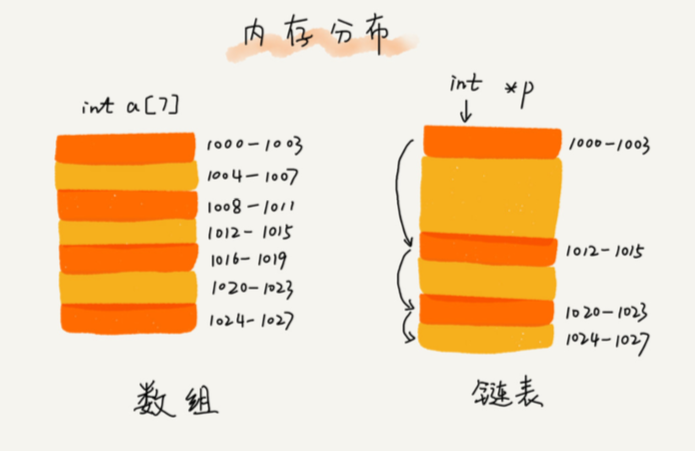 内存分布
int a[7]
1000-1003
1004-1007
1008-1011
1012-1015
1016-1019
1020-1023
1024-1027
数组
int *p
1000-1003
1012-1015
1020-1023
1024-1027
链表